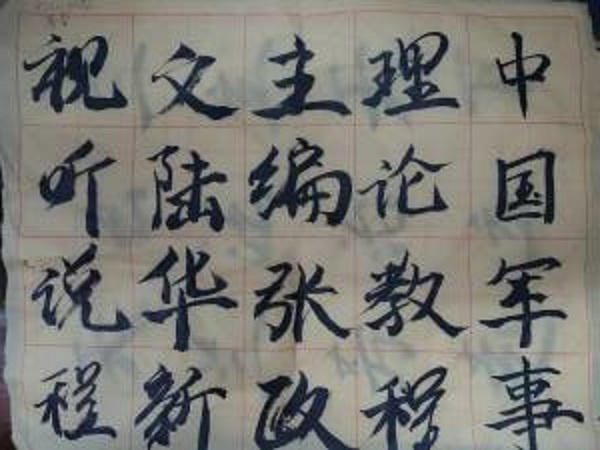 中国军事
理论教程
主编张政
文陆华新
视听说程